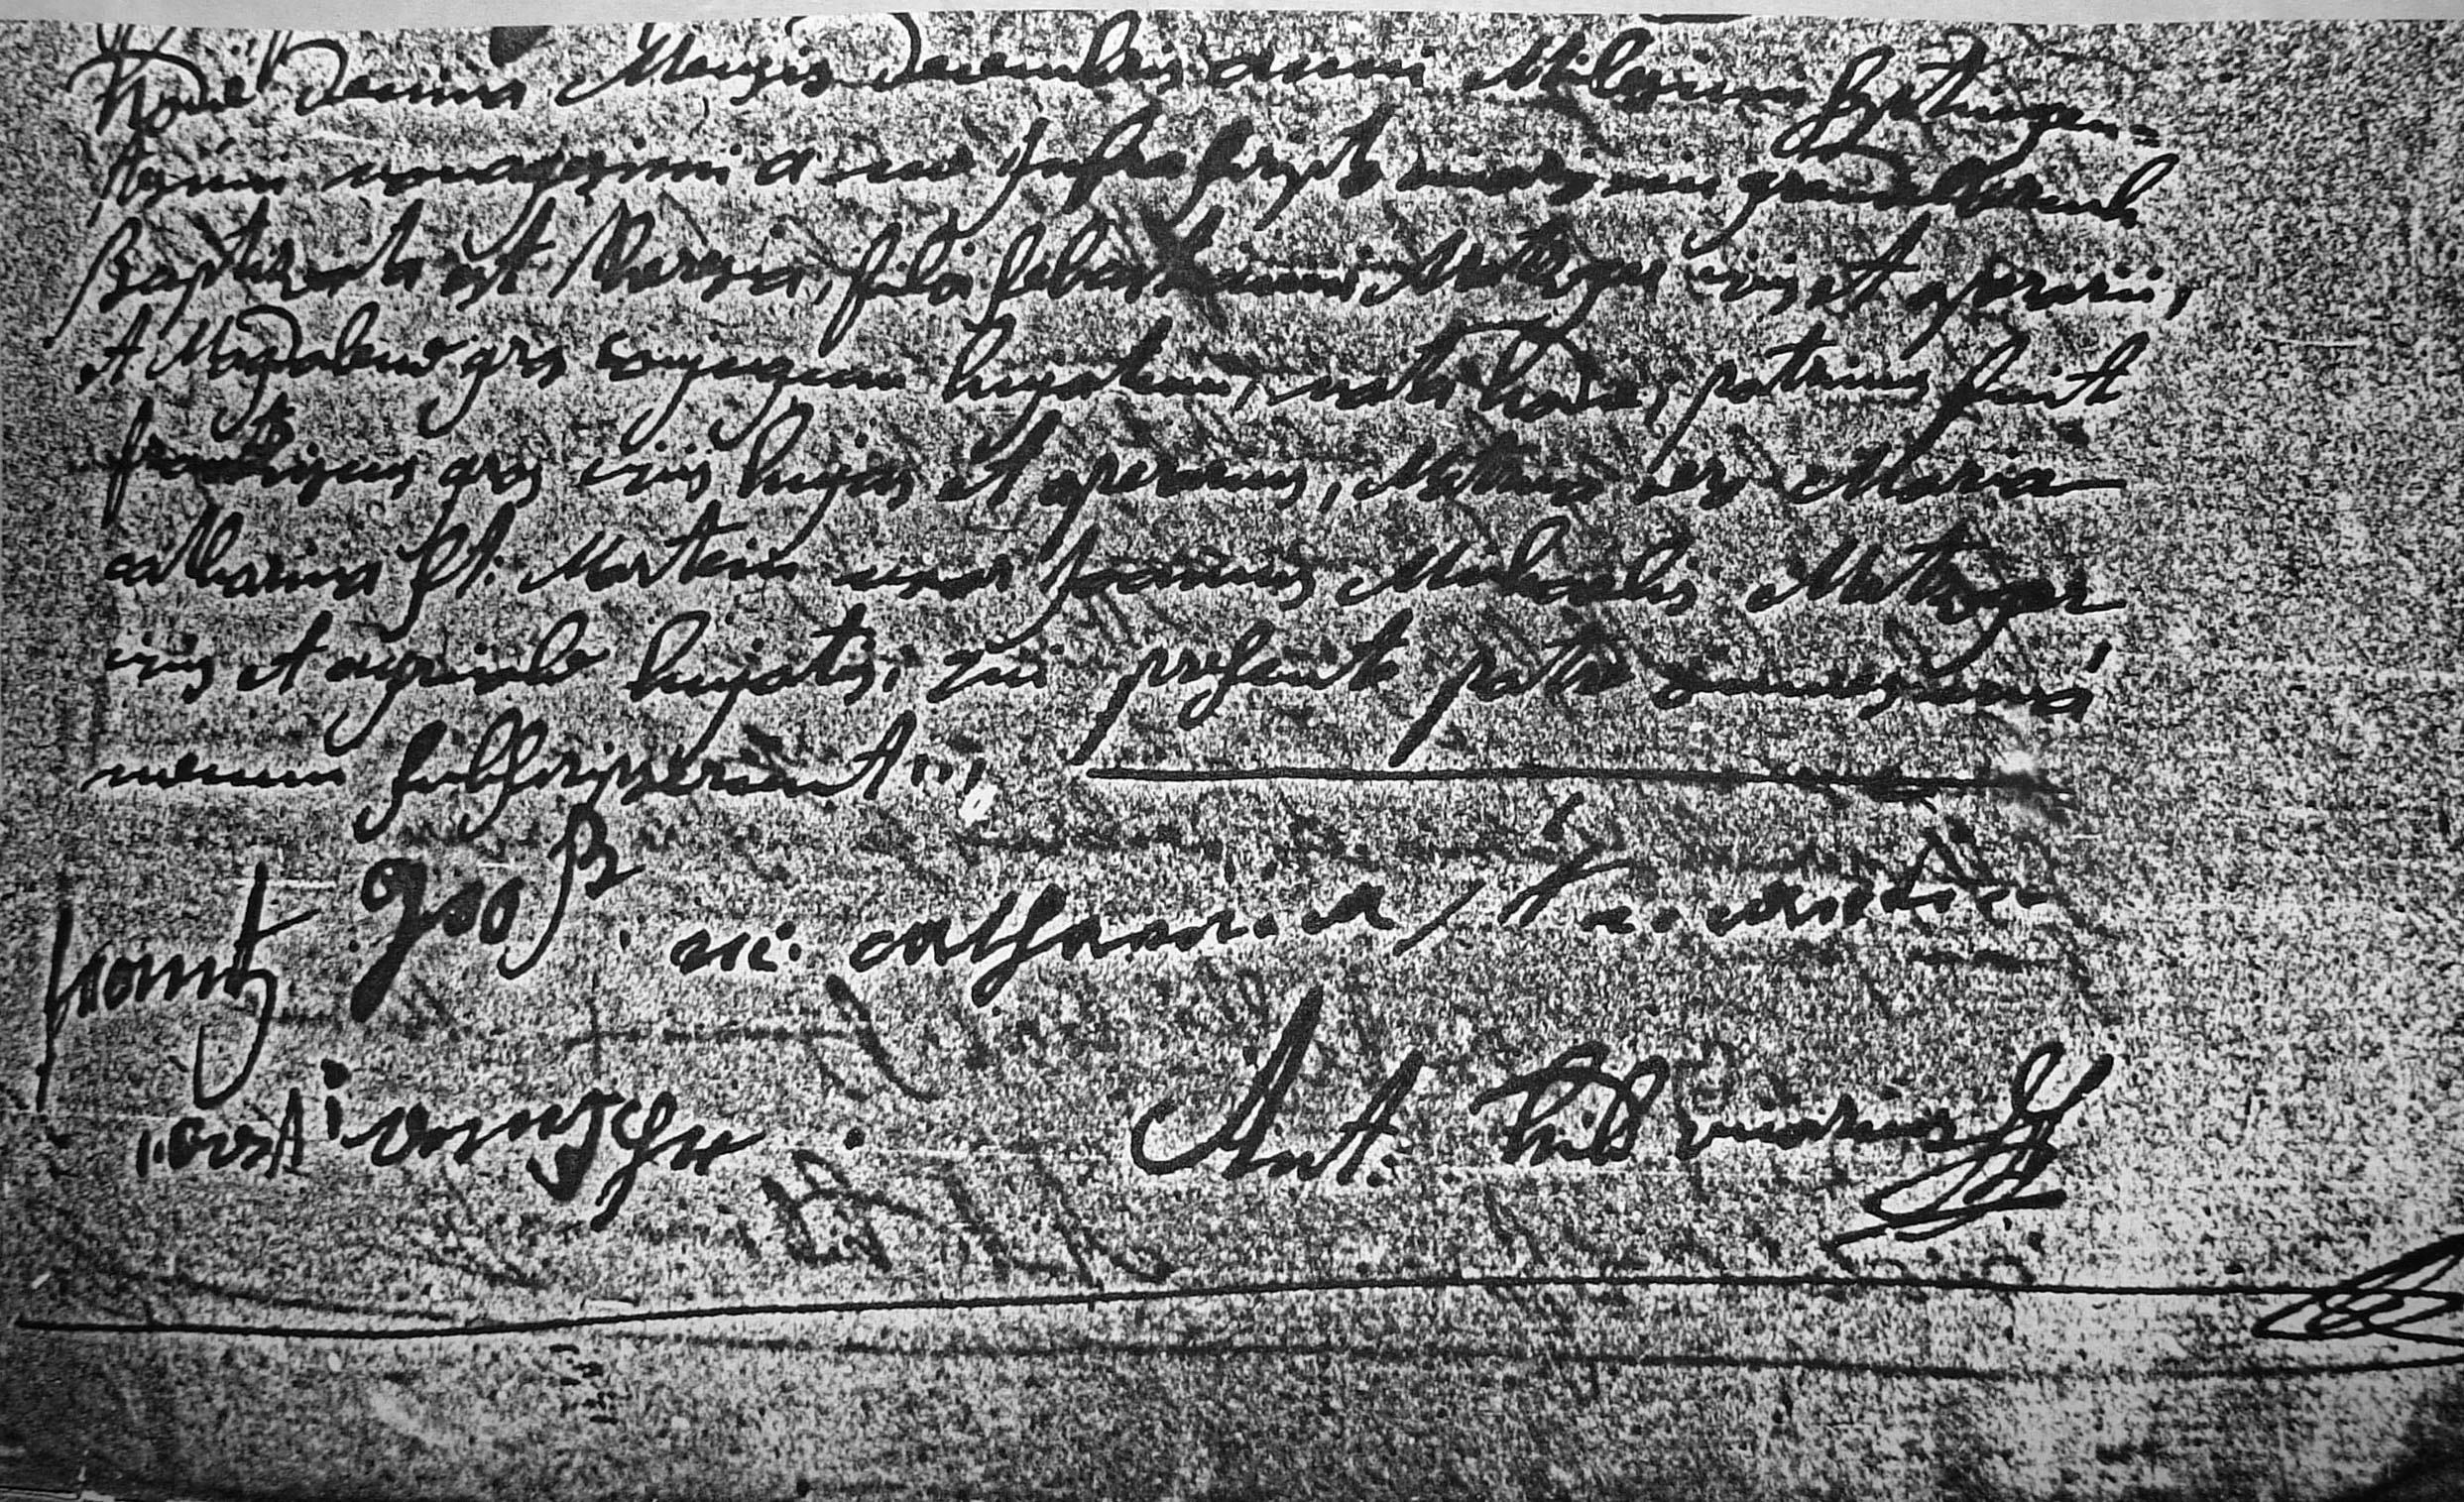 Hodie decima Mensis decembris anni Millesimi Septingen=
tesimi nonagesimi a me Infra scripto
Baptizata est Theresia, filia sebastiani Metzger civis et operarii,
et Magdalena gros conjugum hujatum, nata hodie, patrinus fuit
franciscus gros civis hujas et operarius, Matrina vero Maria
catharina St. Martin uxor Joannis Michaelis Metzger
civis et agricola hujatis, qui presente patre
mecum subscripserunt
frantz groß m. catharina St martin
Ant. vicarius